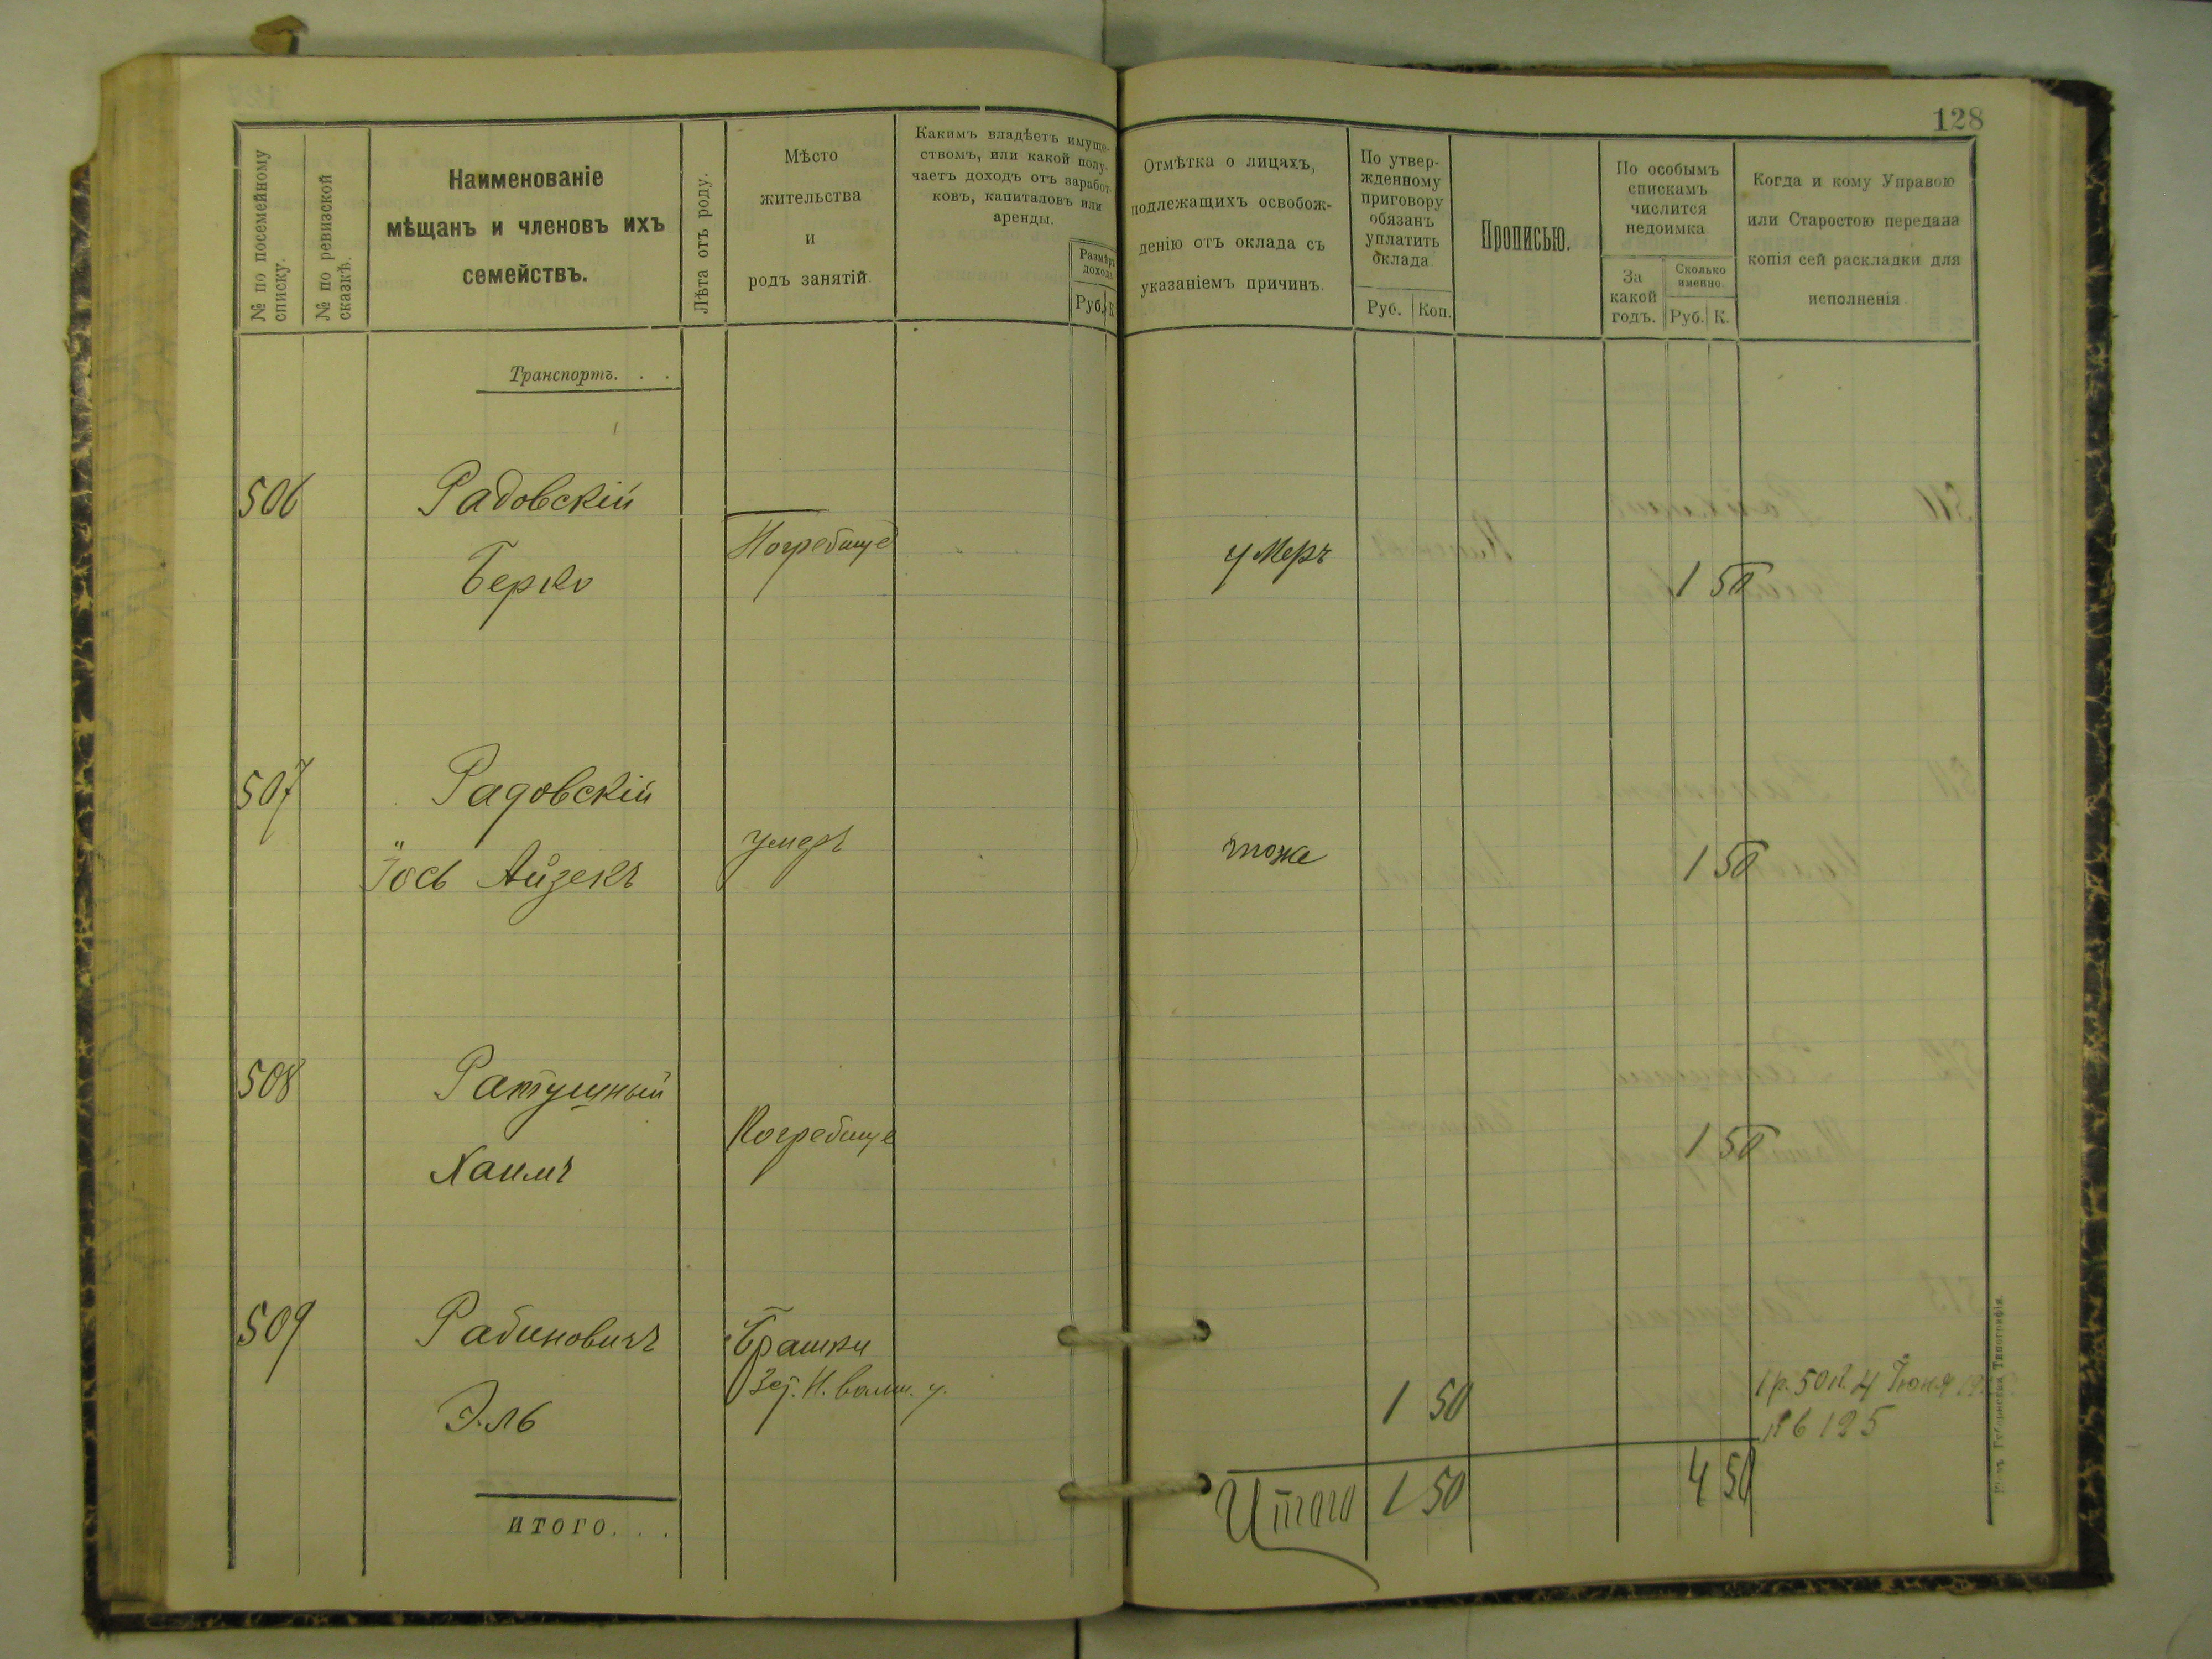 128
№ по посемейному
списку.
№ по ревизской
сказкѣ.
Наименованіе
мѣщанъ и членовъ ихъ
семействъ.
Лѣта отъ роду.
Мѣсто
жительства
и
родъ занятій.
Какимъ владѣетъ имуще-
ствомъ, или какой полу-
чаетъ доходъ отъ заработ-
ковъ, капиталовъ или
аренды.
Размѣръ
дохода
Руб. К
Отмѣтка о лицахъ,
подлежащихъ освобож-
денію отъ оклада съ
указаніемъ причинъ.
По утвер-
жденному
приговору
обязанъ
уплатить
оклада
Руб. Коп.
Прописью.
По особымъ
спискамъ
числится
недоимка
За
какой
годъ.
Сколько
именно.
Руб. К.
Когда и кому Управою
или Старостою передана
копія сей раскладки для
исполненія
Транспортъ. . .
506 Радовскій
Берко Погребище умеръ 1 50
507 Радовскій
Іось Айзекъ умеръ тоже 1 50
508 Ратушный
Хаимъ Погребище 1 50
509 Рабиновичъ Брашки
Эль 1 50
1 р. 50 к. 4 Іюня
№ 125
итого. . .
Итого 1 50 4 50
Губернская Типографія.